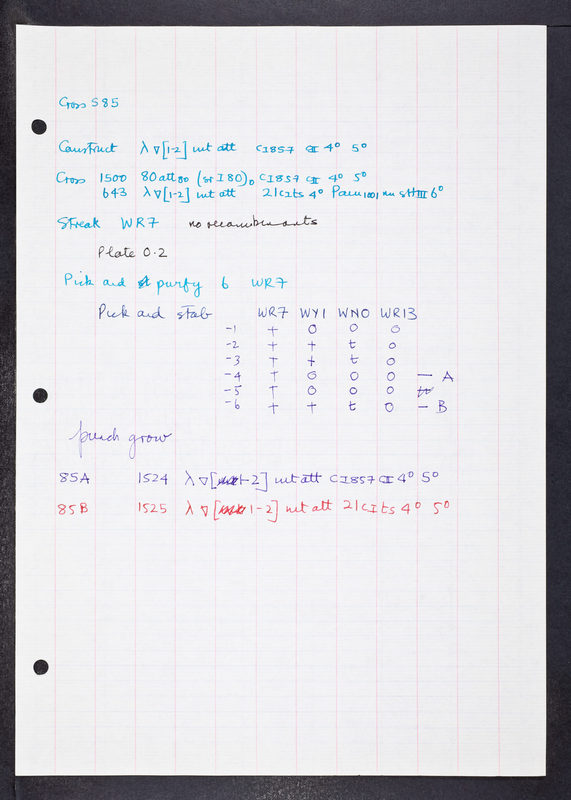 Cross S85
Construct λ ∇[1-2] int att cI857 cII 4° 5°
Cross 1500 80 att80 (or I 80)o cI857 cII 4° 5°
643 λ ∇[1-2] int att 21cIts 4° Pam1001 nu sHIII 6°
Streak WR7 no recombinants
Plate 0.2
Pick and purify 6 WR7
Pick and stab WR7 WY1 WNO WR13
-1 + 0 0 0
-2 + + t 0
-3 + + t 0
-4 + 0 0 0 — A
-5 + 0 0 0
-6 + + t 0 — B
grow
85A 1524 λ ∇[1-2] int att cI857 cII 4° 5°
85B 1525 λ ∇[1-2] int att 21cIts 4° 5°